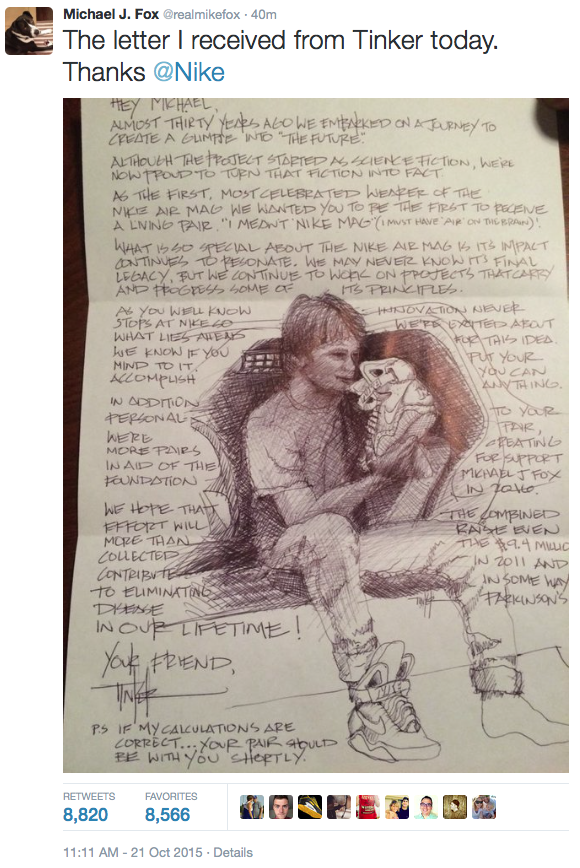 Michael J. Fox @realmikefox · 40m
The letter I received from Tinker today.
Thanks @Nike
HEY MICHAEL,
ALMOST THIRTY YEARS AGO WE EMBARKED ON A JOURNEY TO
CREATE A GLIMPSE INTO "THE FUTURE".
ALTHOUGH THE PROJECT STARTED AS SCIENCE FICTION, WE'RE
NOW PROUD TO TURN THAT FICTION INTO FACT.
AS THE FIRST, MOST CELEBRATED WEARER OF THE
NIKE AIR MAG WE WANTED YOU TO BE THE FIRST TO RECEIVE
A LIVING PAIR. "I MEANT 'NIKE MAG' (I MUST HAVE 'AIR' ON THE BRAIN)!
WHAT IS SO SPECIAL ABOUT THE NIKE AIR MAG IS ITS IMPACT
CONTINUES TO RESONATE. WE MAY NEVER KNOW IT'S FINAL
LEGACY, BUT WE CONTINUE TO WORK ON PROJECTS THAT CARRY
AND PROGRESS SOME OF ITS PRINCIPLES.
AS YOU WELL KNOW INNOVATION NEVER
STOPS AT NIKE SO WE'RE EXCITED ABOUT
WHAT LIES AHEAD FOR THIS IDEA.
WE KNOW IF YOU PUT YOUR
MIND TO IT, YOU CAN
ACCOMPLISH ANYTHING.
IN ADDITION TO YOUR
PERSONAL PAIR,
WE'RE CREATING
MORE PAIRS FOR SUPPORT
IN AID OF THE MICHAEL J FOX
FOUNDATION IN 2016.
WE HOPE THAT THE COMBINED
EFFORT WILL RAISE EVEN
MORE THAN THE $9.4 MILLIO
COLLECTED IN 2011 AND
CONTRIBUTE IN SOME WAY
TO ELIMINATING PARKINSON'S
DISEASE
IN OUR LIFETIME!
YOUR FRIEND,
TINKER
TINKER
PS IF MY CALCULATIONS ARE
CORRECT...YOUR PAIR SHOULD
BE WITH YOU SHORTLY.
RETWEETS FAVORITES
8,820 8,566
11:11 AM - 21 Oct 2015 · Details